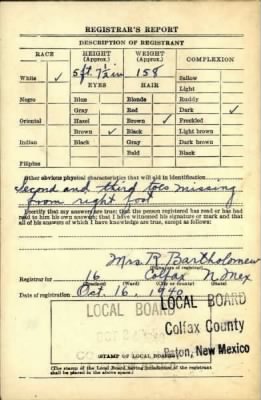 REGISTRAR'S REPORT
DESCRIPTION OF REGISTRANT
RACE HEIGHT (Approx.) WEIGHT (Approx.) COMPLEXION
White ✓ 5 ft. 7½ in 158 Sallow
EYES HAIR Light
Negro Blue Blonde Ruddy
Gray Red Dark ✓
Oriental Hazel Brown ✓ Freckled
Brown ✓ Black Light brown
Indian Black Gray Dark brown
Bald Black
Filipino
Other obvious physical characteristics that will aid in identification
Second and third toes missing
from right foot
I certify that my answers are true; that the person registered has read or has had
read to him his own answers; that I have witnessed his signature or mark and that
all of his answers of which I have knowledge are true, except as follows:
Mrs. R Bartholomew
(Signature of registrar)
Registrar for 16 Colfax N. Mex
Date of registration Oct. 16, 1940
LOCAL BOARD
LOCAL BOARD
Colfax County
Raton, New Mexico
(STAMP OF LOCAL BOARD)
(The stamp of the Local Board having jurisdiction of the registrant
shall be placed in the above space.)